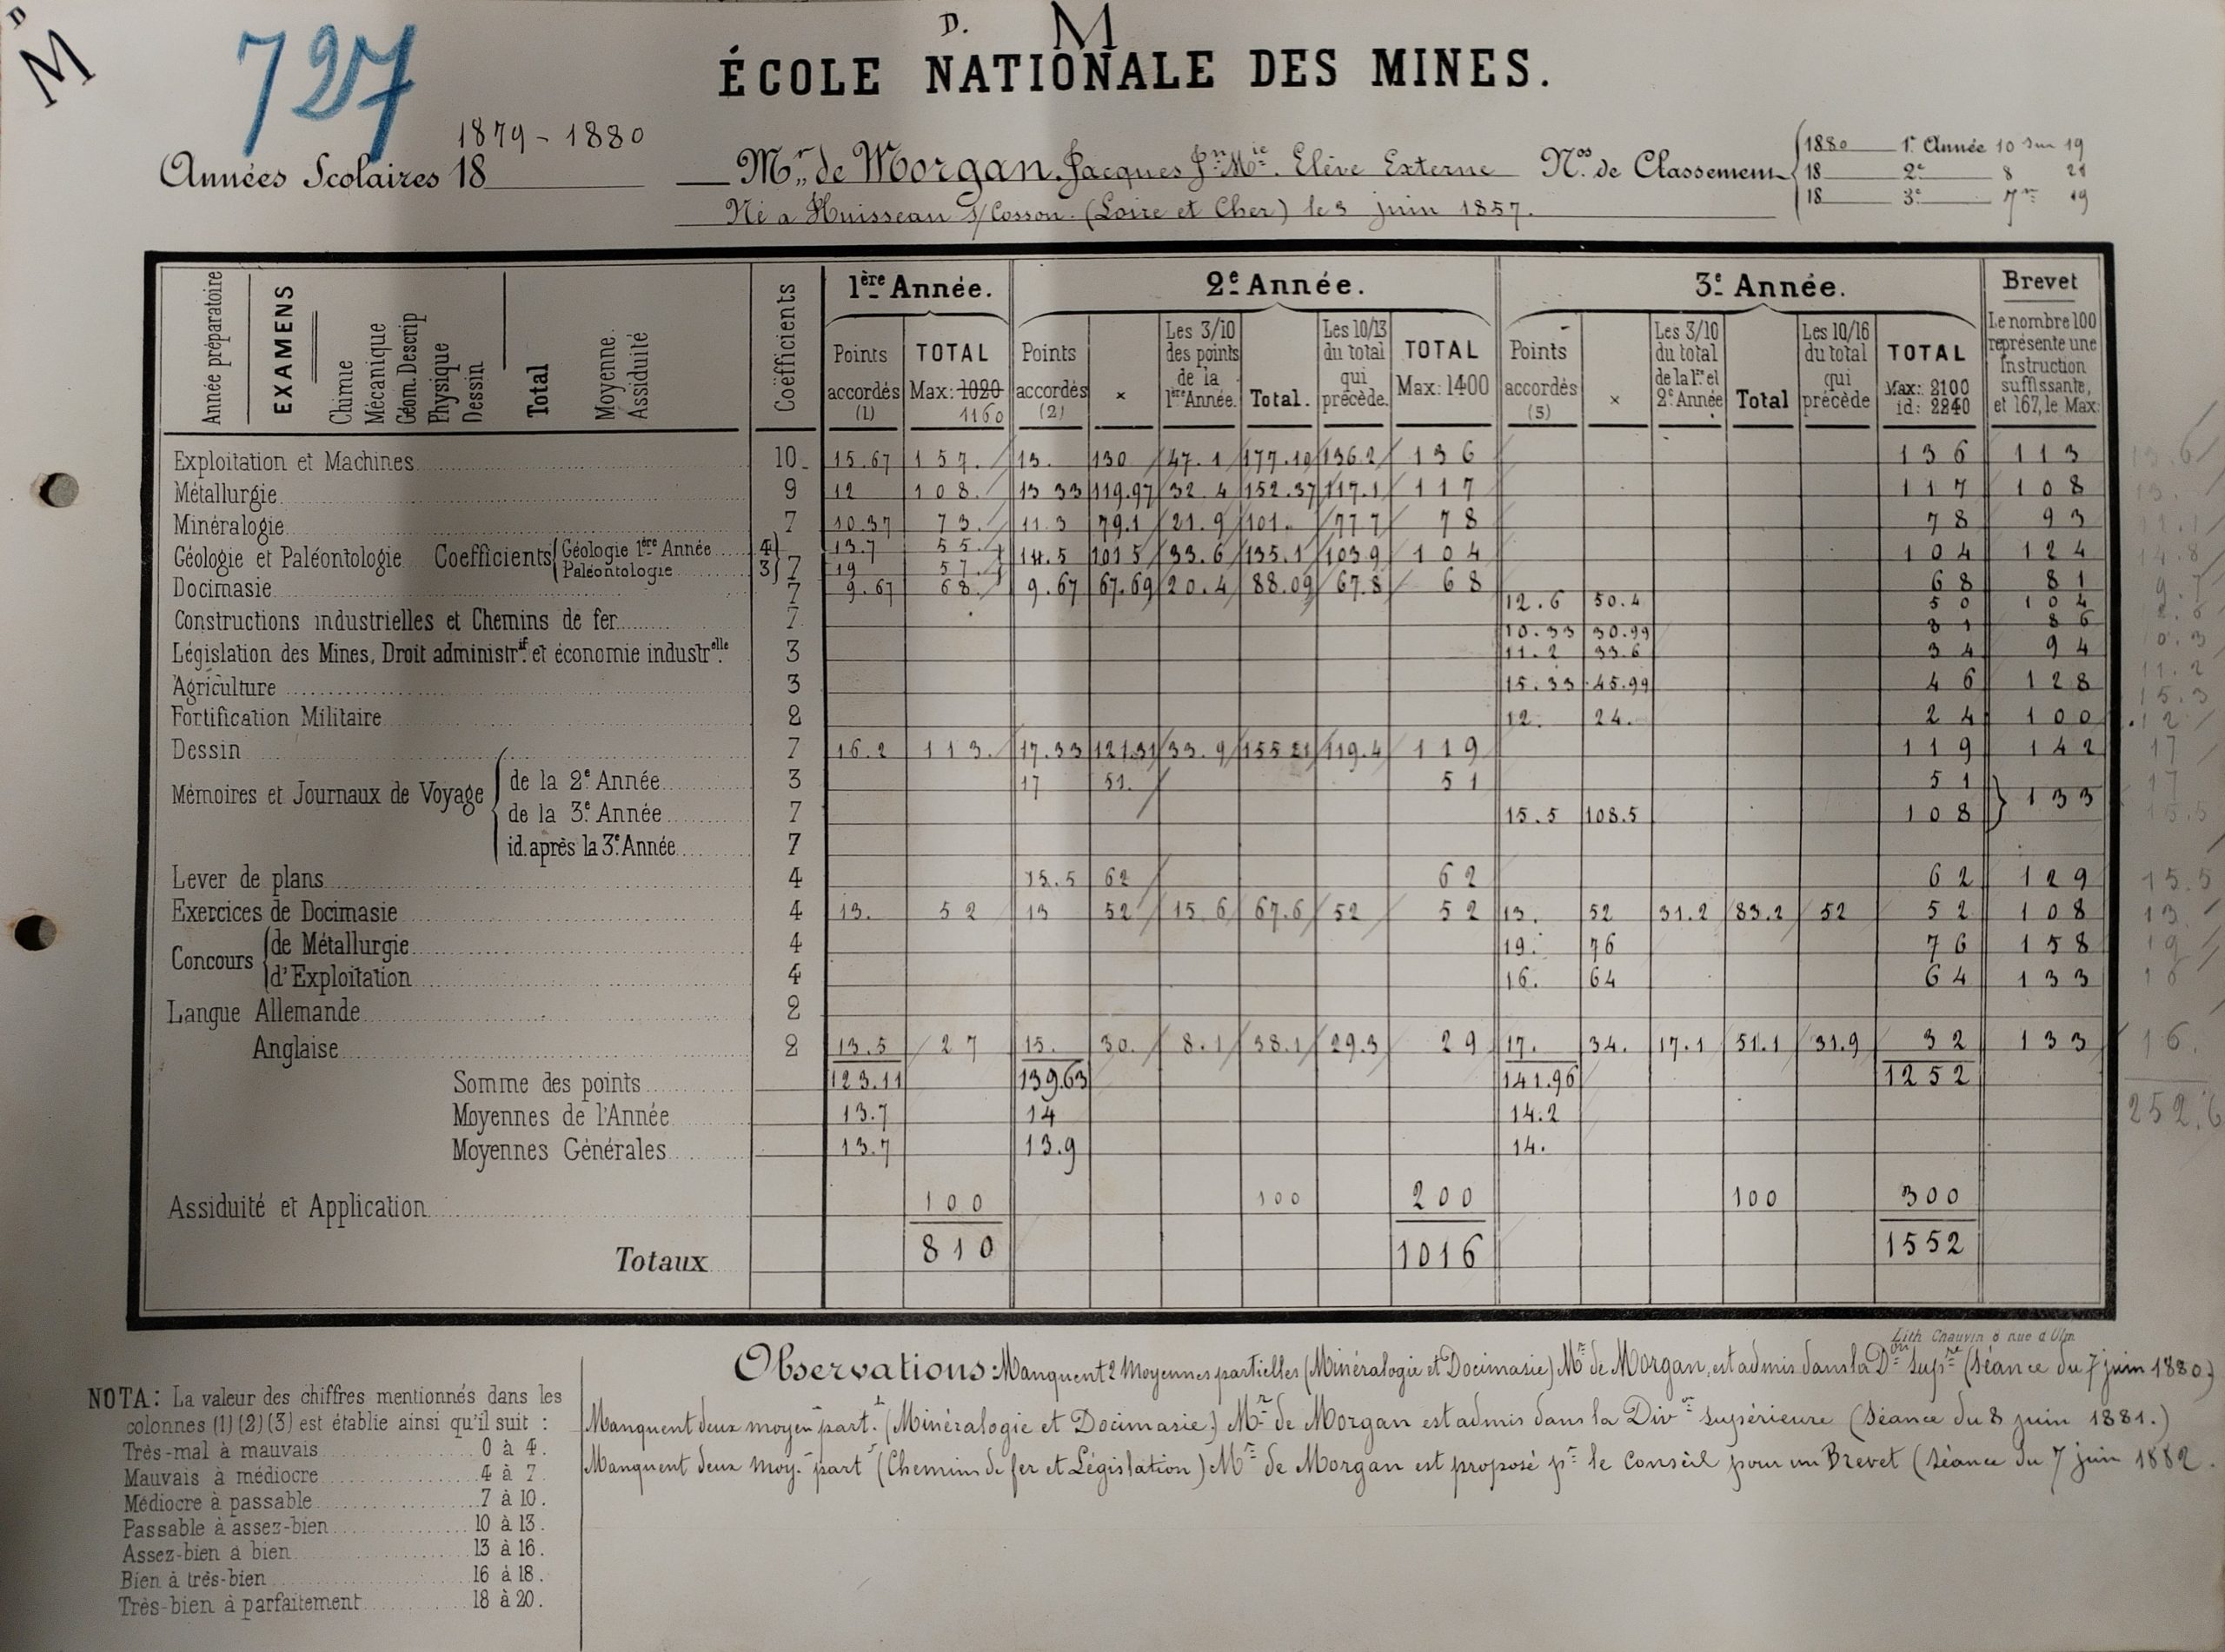 D
M
D. M
727
ÉCOLE NATIONALE DES MINES.
1879 - 1880
Années Scolaires 18
Mr. de Morgan. Jacques Jn. Mie. Elève Externe
Né à Huisseau s/Cosson. (Loire et Cher) le 3 juin 1857.
Nos. de Classement
1880 1e. Année 10 sur 19
18 2e 8 21
18 3e 7 sur 19
Année préparatoire
EXAMENS
Chimie
Mécanique
Géom. Descrip
Physique
Dessin
Total
Moyenne.
Assiduité
Coëfficients
1ère Année. 2e Année. 3e Année. Brevet
Points accordés (1) TOTAL Max: 1020 1160
Points accordés (2) × Les 3/10 des points de la 1ère Année. Total. Les 10/13 du total qui précède. TOTAL Max: 1400
Points accordés (3) × Les 3/10 du total de la 1re et 2e Année Total Les 10/16 du total qui précède TOTAL Max: 2100 id: 2240
Le nombre 100 représente une Instruction suffissante, et 167, le Max:
Exploitation et Machines 10 15.67 157. 13. 130 47.1 177.10 136.2 136 136 113 13.6
Métallurgie 9 12 108. 13 33 119.97 32.4 152.37 117.1 117 117 108 13.
Minéralogie 7 10.37 73. 11.3 79.1 21.9 101. 77 7 78 78 93
Géologie et Paléontologie Coefficients Géologie 1ère Année 4 13.7 55.
Paléontologie 3 7 19 57. 14.5 101 5 33.6 135.1 103.9 104 104 124 14.8
Docimasie 7 9.67 68. 9.67 67.69 20.4 88.09 67.8 68 68 81 9.7
Constructions industrielles et Chemins de fer 7 12.6 50.4 50 104
Législation des Mines, Droit administrif. et économie industrelle. 3 10.33 30.99 31 86 10.3
11.2 33.6 34 94 11.2
Agriculture 3 15.33 45.99 46 128 15.3
Fortification Militaire 2 12. 24. 24 100 12
Dessin 7 16.2 113. 17.33 121.31 33.9 155 21 119.4 119 119 142 17
Mémoires et Journaux de Voyage de la 2e Année 3 17 51. 51 51 17
de la 3e Année 7 15.5 108.5 108 133 15.5
id. après la 3e Année 7
Lever de plans 4 15.5 62 62 62 129 15.5
Exercices de Docimasie 4 13. 52 13 52 15.6 67.6 52 52 13. 52 31.2 83.2 52 52 108 13
Concours de Métallurgie 4 19. 76 76 158 19
d'Exploitation 4 16. 64 64 133 16
Langue Allemande 2
Anglaise 2 13.5 27 15. 30. 8.1 38.1 29.3 29 17. 34. 17.1 51.1 31.9 32 133 16.
Somme des points 123.11 139.63 141.96 1252
Moyennes de l'Année 13.7 14 14.2 252.6
Moyennes Générales 13.7 13.9 14.
Assiduité et Application 100 100 200 100 300
Totaux 810 1016 1552
Lith Chauvin 6 rue d'Ulm
Observations : Manquent 2 Moyennes partielles (Minéralogie et Docimasie) Mr. de Morgan, est admis dans la Don. Supre. (Séance du 7 juin 1880.)
Manquent deux moyen. part. (Minéralogie et Docimasie.) Mr. de Morgan est admis dans la Divon supérieure (Séance du 8 juin 1881.)
Manquent deux moy. part (Chemins de fer et Législation) Mr. de Morgan est proposé pr. le Conseil pour un Brevet (Séance du 7 juin 1882.
NOTA: La valeur des chiffres mentionnés dans les
colonnes (1) (2) (3) est établie ainsi qu'il suit :
Très-mal à mauvais 0 à 4.
Mauvais à médiocre 4 à 7
Médiocre à passable 7 à 10.
Passable à assez-bien 10 à 13.
Assez-bien à bien 13 à 16.
Bien à très-bien 16 à 18.
Très-bien à parfaitement 18 à 20.